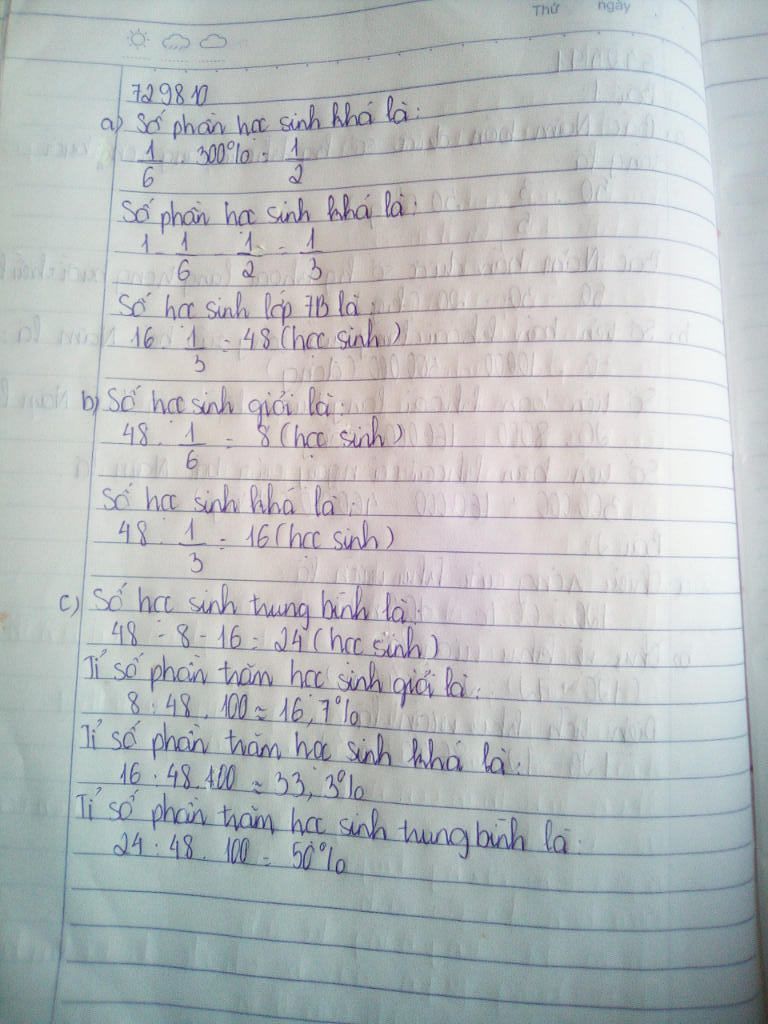 Thứ ngày
729810
a) Số phần học sinh khá là:
1/6 . 300% = 1/2
Số phần học sinh khá là:
1 - 1/6 - 1/2 = 1/3
Số học sinh lớp 7B là:
16 : 1/3 = 48 (học sinh)
b) Số học sinh giỏi là:
48 . 1/6 = 8 (học sinh)
Số học sinh khá là:
48 . 1/3 = 16 (học sinh)
c) Số học sinh trung bình là:
48 - 8 - 16 = 24 (học sinh)
Tỉ số phần trăm học sinh giỏi là:
8 : 48 . 100 ≈ 16,7%
Tỉ số phần trăm học sinh khá là:
16 : 48 . 100 ≈ 33,3%
Tỉ số phần trăm học sinh trung bình là:
24 : 48 . 100 = 50%